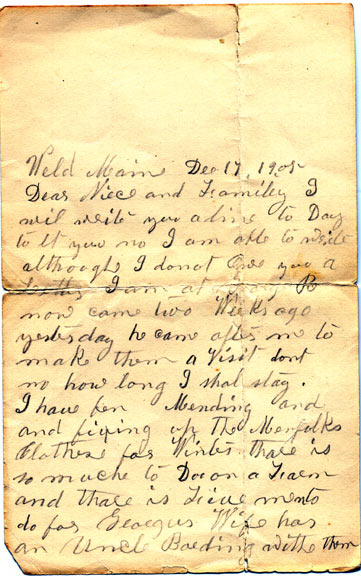 Weld Maine Dec 17, 1905
Dear Niece and Familey I
will write you a line to Day
to let you no I am able to write
although I do not Owe you a
I am at
now came two Weeks ago
yesterday he came after me to
make them a Visit dont
no how long I shal stay.
I have ben Mending and
and fixing up the Menfolks
Clothese for Winter thare is
so muche to Do on a Farm
and thare is five ments
do for Georges Wife has
an Uncle Boeding withe them